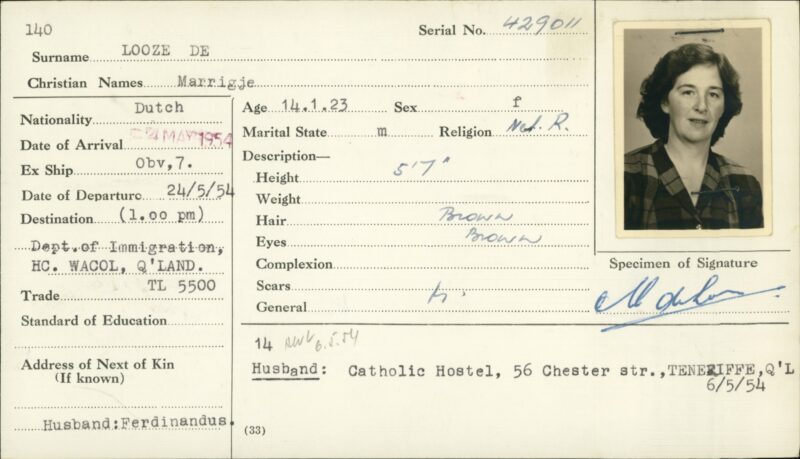 140
Serial No. 429011
Surname LOOZE DE
Christian Names Marrigje
Nationality Dutch
Date of Arrival 4 MAY 1954
Ex Ship Obv,7.
Date of Departure 24/5/54
Destination (1.00 pm)
Dept.of Immigration,
HC. WACOL, Q'LAND.
TL 5500
Trade
Standard of Education
Address of Next of Kin
(If known)
Husband:Ferdinandus.
Age 14.1.23 Sex f
Marital State m Religion Net. R.
Description—
Height 5'7"
Weight
Hair Brown
Eyes Brown
Complexion
Scars
General
Specimen of Signature
14 6.5.54
Husband: Catholic Hostel, 56 Chester str.,TENERIFFE,Q'L
6/5/54
(33)